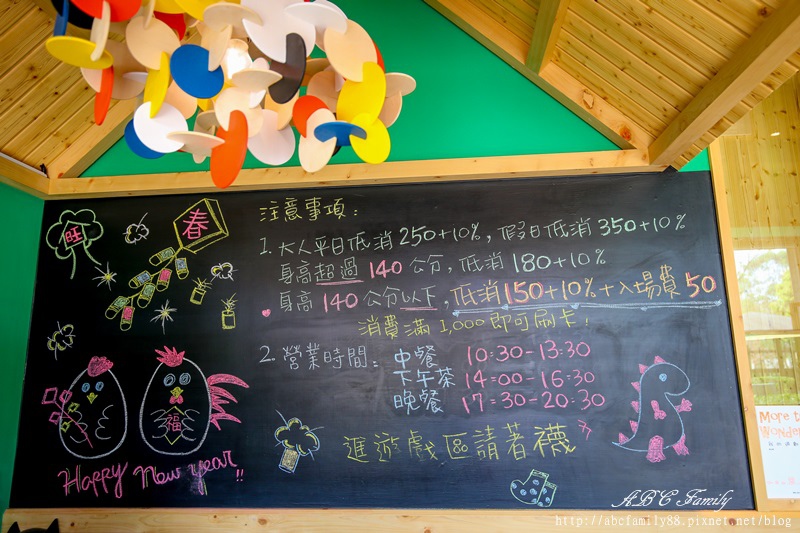 旺
春
注意事項：
1. 大人平日低消250+10%，假日低消350+10%
身高超過140公分，低消180+10%
身高140公分以下，低消150+10%+入場費50
消費滿1,000即可刷卡！
2. 營業時間：中餐 10:30-13:30
下午茶 14:00-16:30
晚餐 17:30-20:30
進遊戲區請著襪
福
Happy New year!!
More t
Wonder
ABC Family
http://abcfamily88.pixnet.net/blog